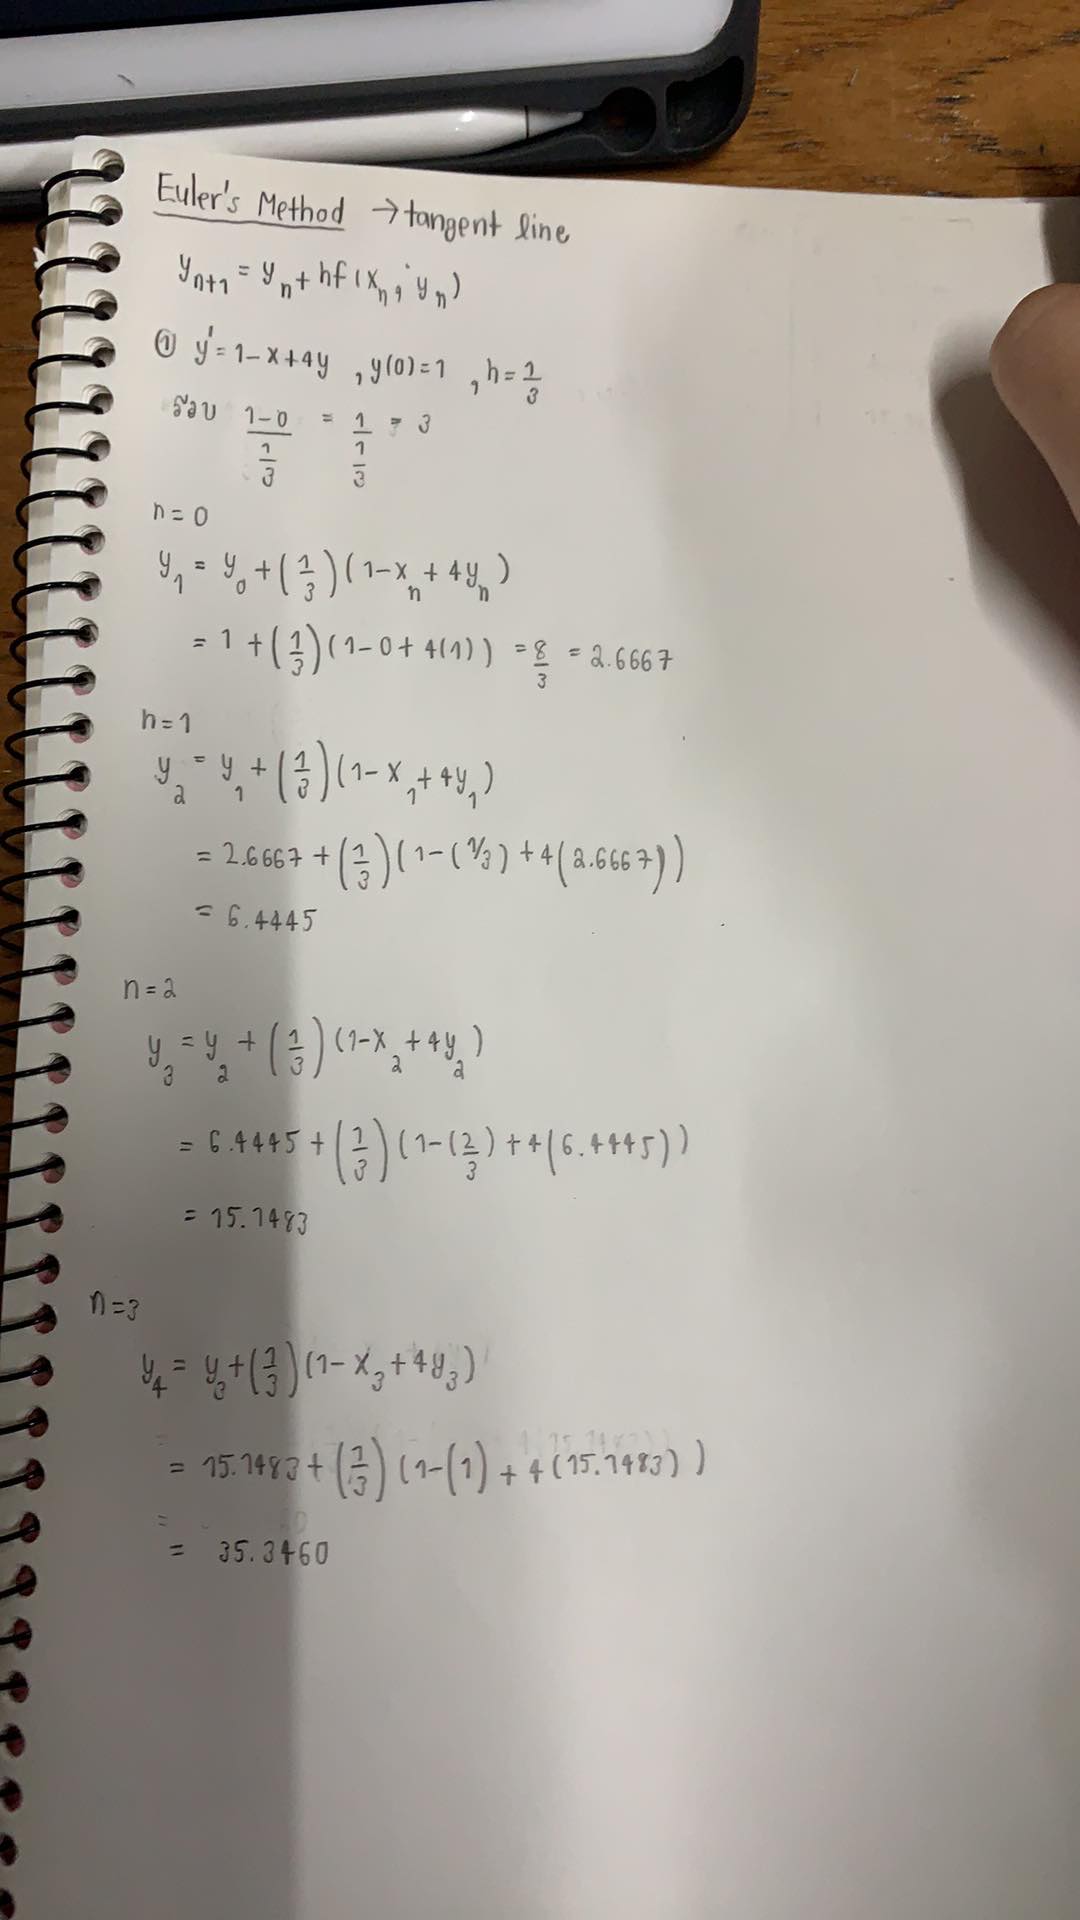 Euler's Method → tangent line
yₙ₊₁ = yₙ + hf(xₙ, yₙ)
① y' = 1-x+4y , y(0)=1 , h = 1/3
รอบ (1-0)/(1/3) = 1/(1/3) = 3
n = 0
y₁ = y₀ + (1/3)(1-xₙ + 4yₙ)
= 1 + (1/3)(1-0+4(1)) = 8/3 = 2.6667
n = 1
y₂ = y₁ + (1/3)(1-x₁+4y₁)
= 2.6667 + (1/3)(1-(1/3)+4(2.6667))
= 6.4445
n = 2
y₃ = y₂ + (1/3)(1-x₂+4y₂)
= 6.4445 + (1/3)(1-(2/3)+4(6.4445))
= 15.1483
n = 3
y₄ = y₃ + (1/3)(1-x₃+4y₃)
= 15.1483 + (1/3)(1-(1)+4(15.1483))
= 35.3460